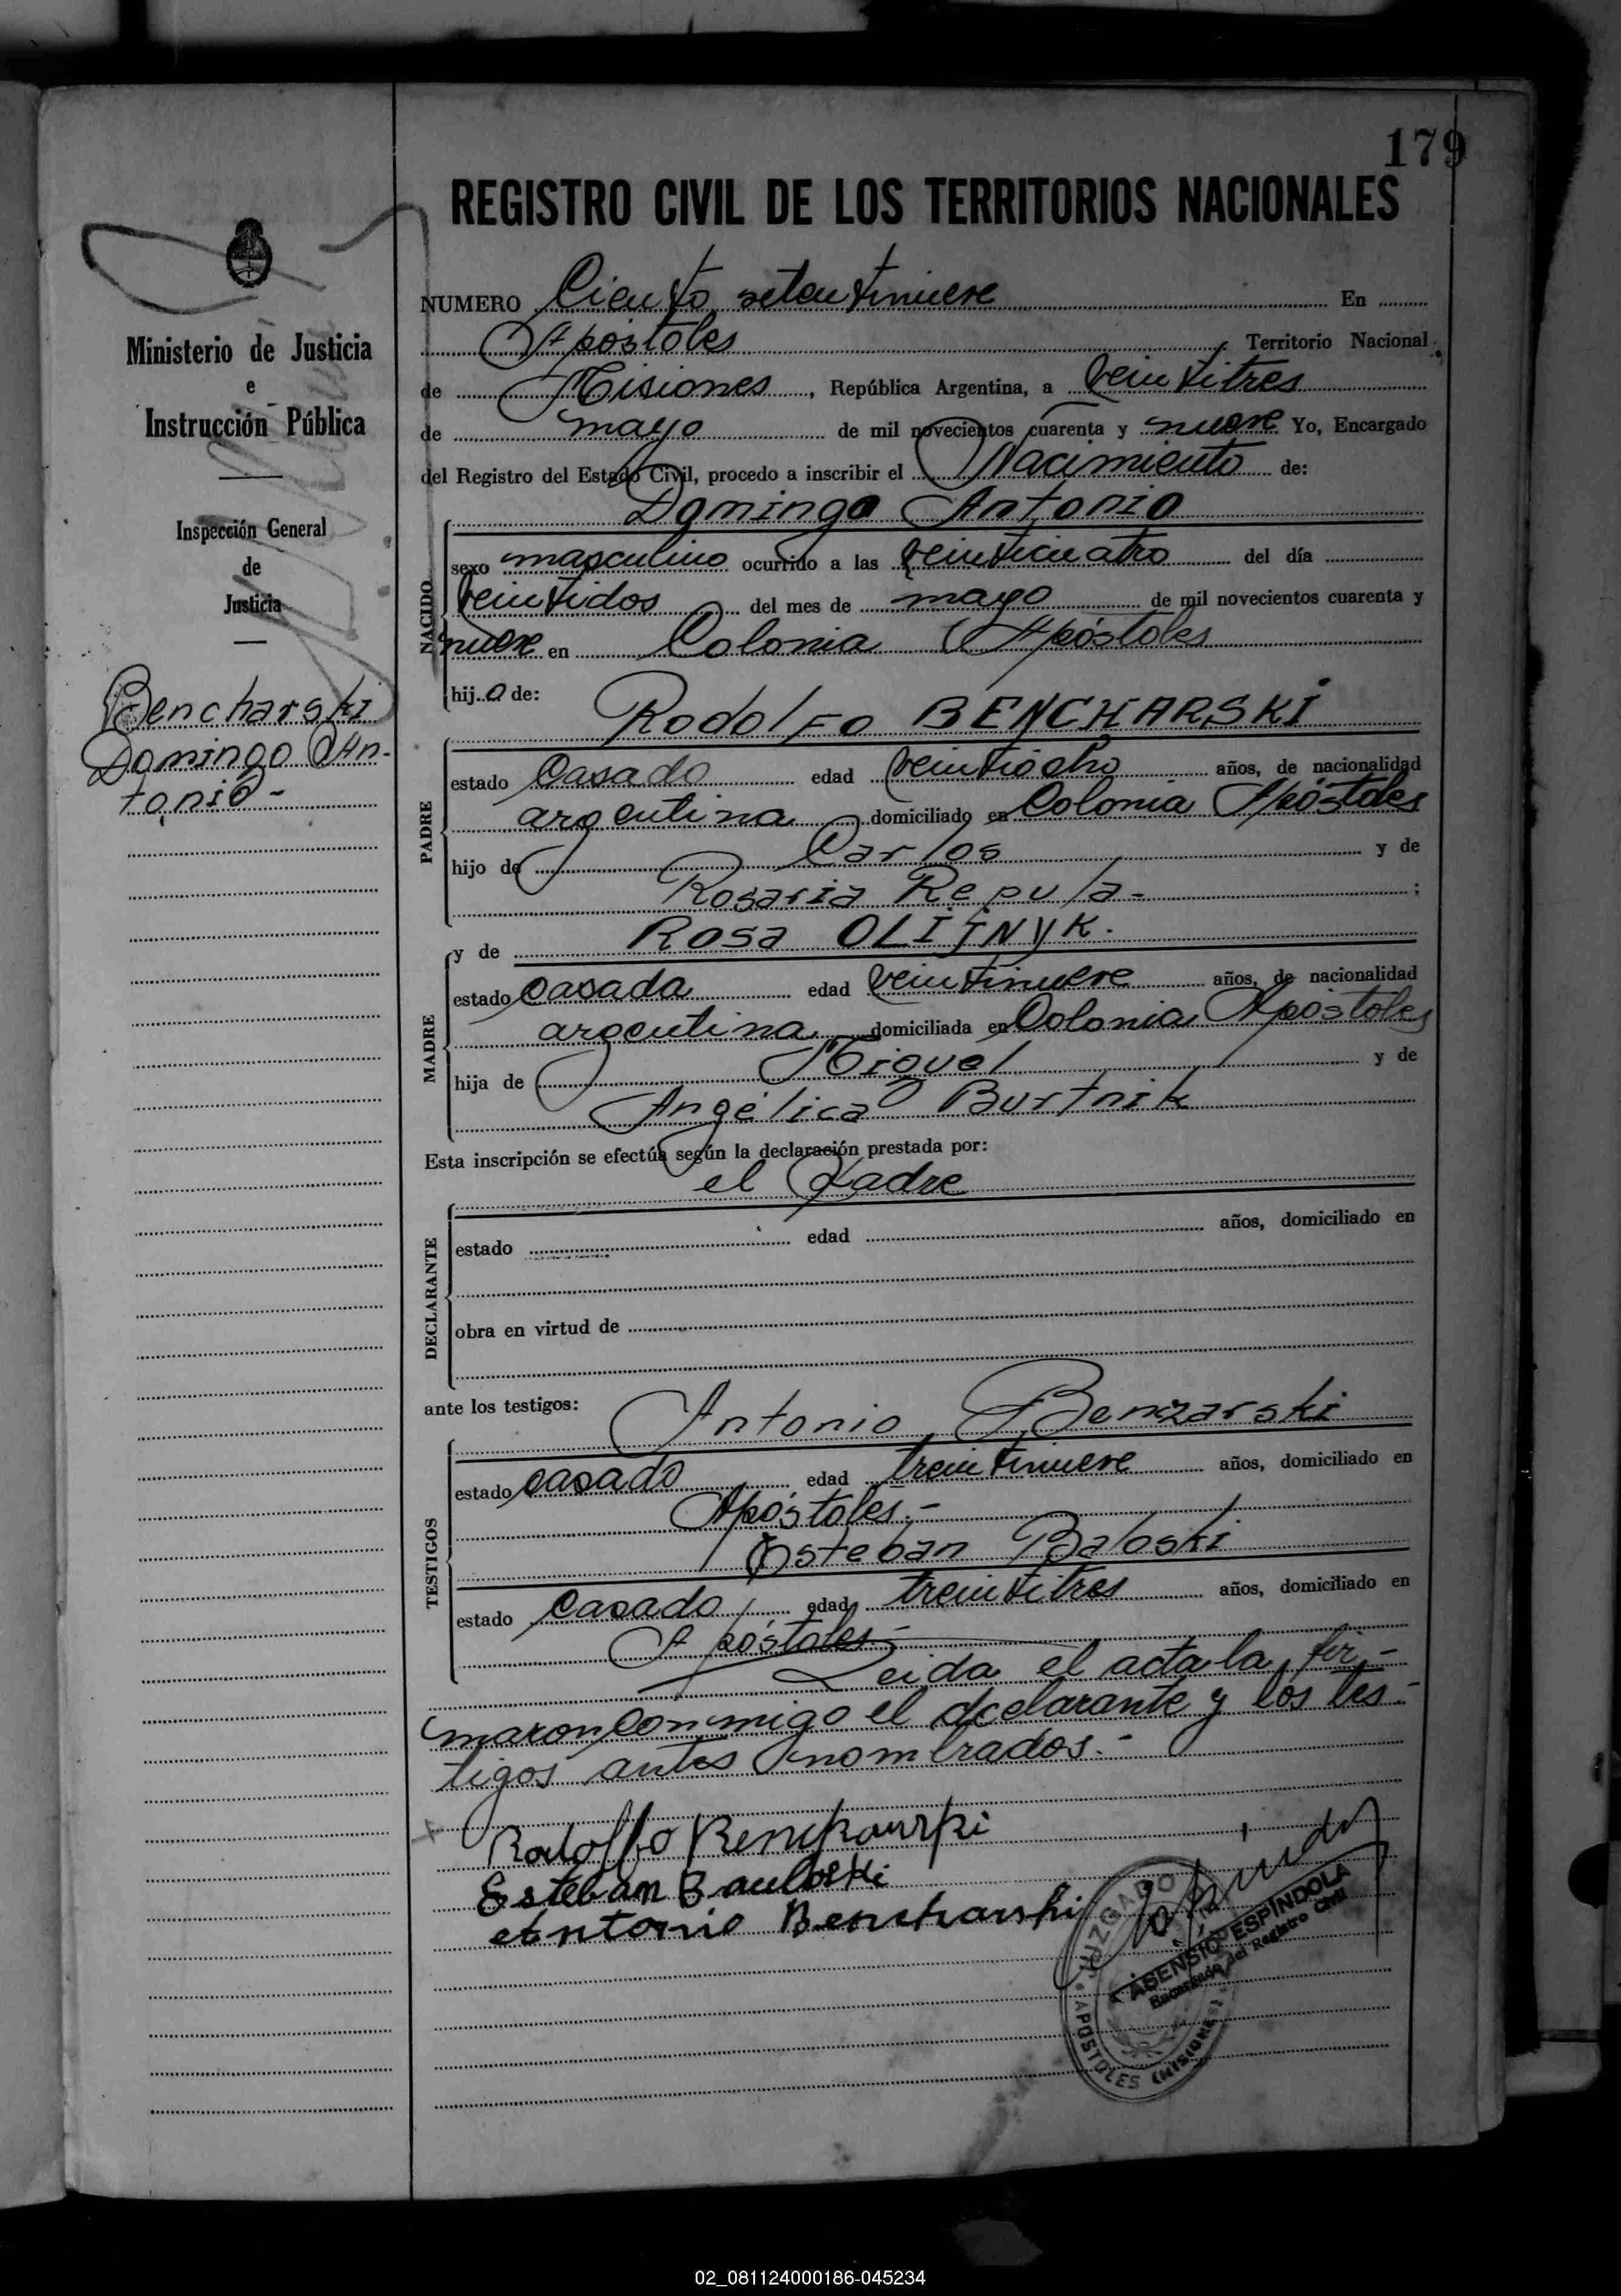 179
REGISTRO CIVIL DE LOS TERRITORIOS NACIONALES
Ministerio de Justicia
e
Instrucción Pública
Inspección General
de
Justicia
Bencharski
Domingo An-
tonio-
NUMERO Ciento setentinueve En
Apóstoles, Territorio Nacional
de Misiones, República Argentina, a veintitres
de mayo de mil novecientos cuarenta y nueve Yo, Encargado
del Registro del Estado Civil, procedo a inscribir el Nacimiento de:
Domingo Antonio
NACIDO
sexo masculino ocurrido a las veinticuatro del día
veintidos del mes de mayo de mil novecientos cuarenta y
nueve en Colonia Apóstoles
hijo de:
Rodolfo BENCHARSKI
PADRE
estado casado edad veintiocho años, de nacionalidad
argentina domiciliado en Colonia Apóstoles
hijo de Carlos y de
Rosaria Repula- ;
y de Rosa OLIJNYK.
MADRE
estado casada edad veintinueve años, de nacionalidad
argentina domiciliada en Colonia Apóstoles
hija de Miguel y de
Angélica Burtnik
Esta inscripción se efectúa según la declaración prestada por:
el Padre
DECLARANTE
estado edad años, domiciliado en
obra en virtud de
ante los testigos:
Antonio Benzarski
TESTIGOS
estado casado edad treintinueve años, domiciliado en
Apóstoles.-
Esteban Baloski
estado casado edad treintitres años, domiciliado en
Apóstoles.-
Leida el acta la fir-
maron conmigo el declarante y los tes-
tigos antes nombrados.-
Rodolfo Bencharski
Esteban Bauloski
Antonio Bencharski
JUZGADO
APOSTOLES (MISIONES)
ASENSIO ESPÍNDOLA
Encargado del Registro Civil
02_081124000186-045234